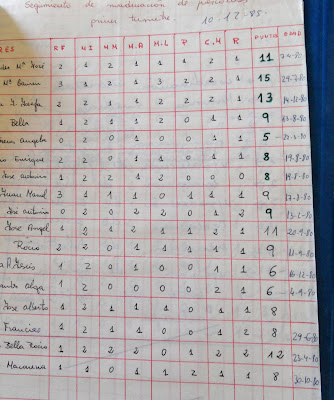 Seguimiento de maduración de
primer trimestre 10-12-85.
RES RF M I M M M.A M.L P C.M R PUNTU EDAD
Mª José 2 1 2 1 1 1 2 1 11 7-4-80
Mª 3 1 2 1 3 2 2 1 15 29-7-80
Josefa 2 2 1 1 2 2 2 1 13 14-12-80
Bella 1 2 1 1 2 0 1 1 9
angela 0 2 0 1 0 0 1 1 5
Enrique 2 2 0 1 1 0 1 1 8 19-8-80
Jose antonio 1 2 2 1 2 0 0 0 8 19-8-80
Juan Manol 3 1 1 0 1 1 1 1 9 17-8-80
Jose antonio 0 2 0 2 2 0 1 2 9
Jose Angel 1 2 1 2 1 1 2 1 11 20-9-80
Rocio 2 2 0 1 1 1 1 1 9
1 2 0 1 0 0 1 1 6 16-12-80
olga 1 2 0 0 0 0 2 1 6 4-9-80
Jose alberto 1 2 1 1 1 0 1 1 8
Francisco 1 2 1 1 0 0 1 2 8 29-6-80
Bella Rocio 1 2 2 2 0 1 2 2 12 23-4-80
Macarena 1 1 0 1 1 2 1 1 8 30-10-80